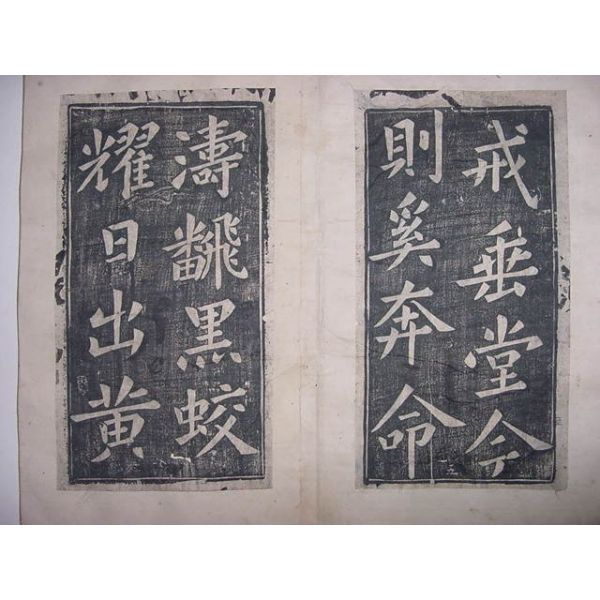 戒垂堂今
則奚奔命
濤飜黑蛟
耀日出黃